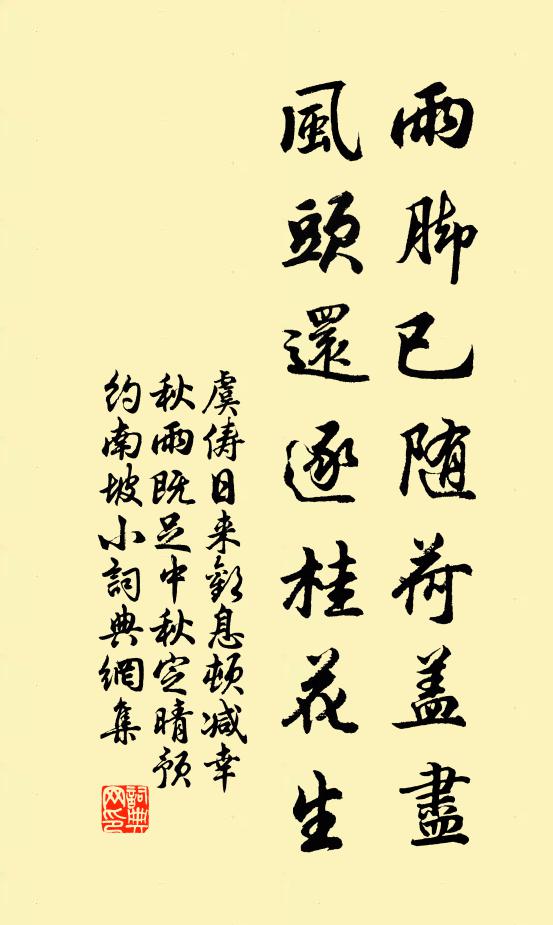 雨脚已随荷盖盡
風頭還逐桂花生
虞儔日来歡息頓减幸
秋雨既足中秋定晴预
约南坡小詞典網集
詞典网印